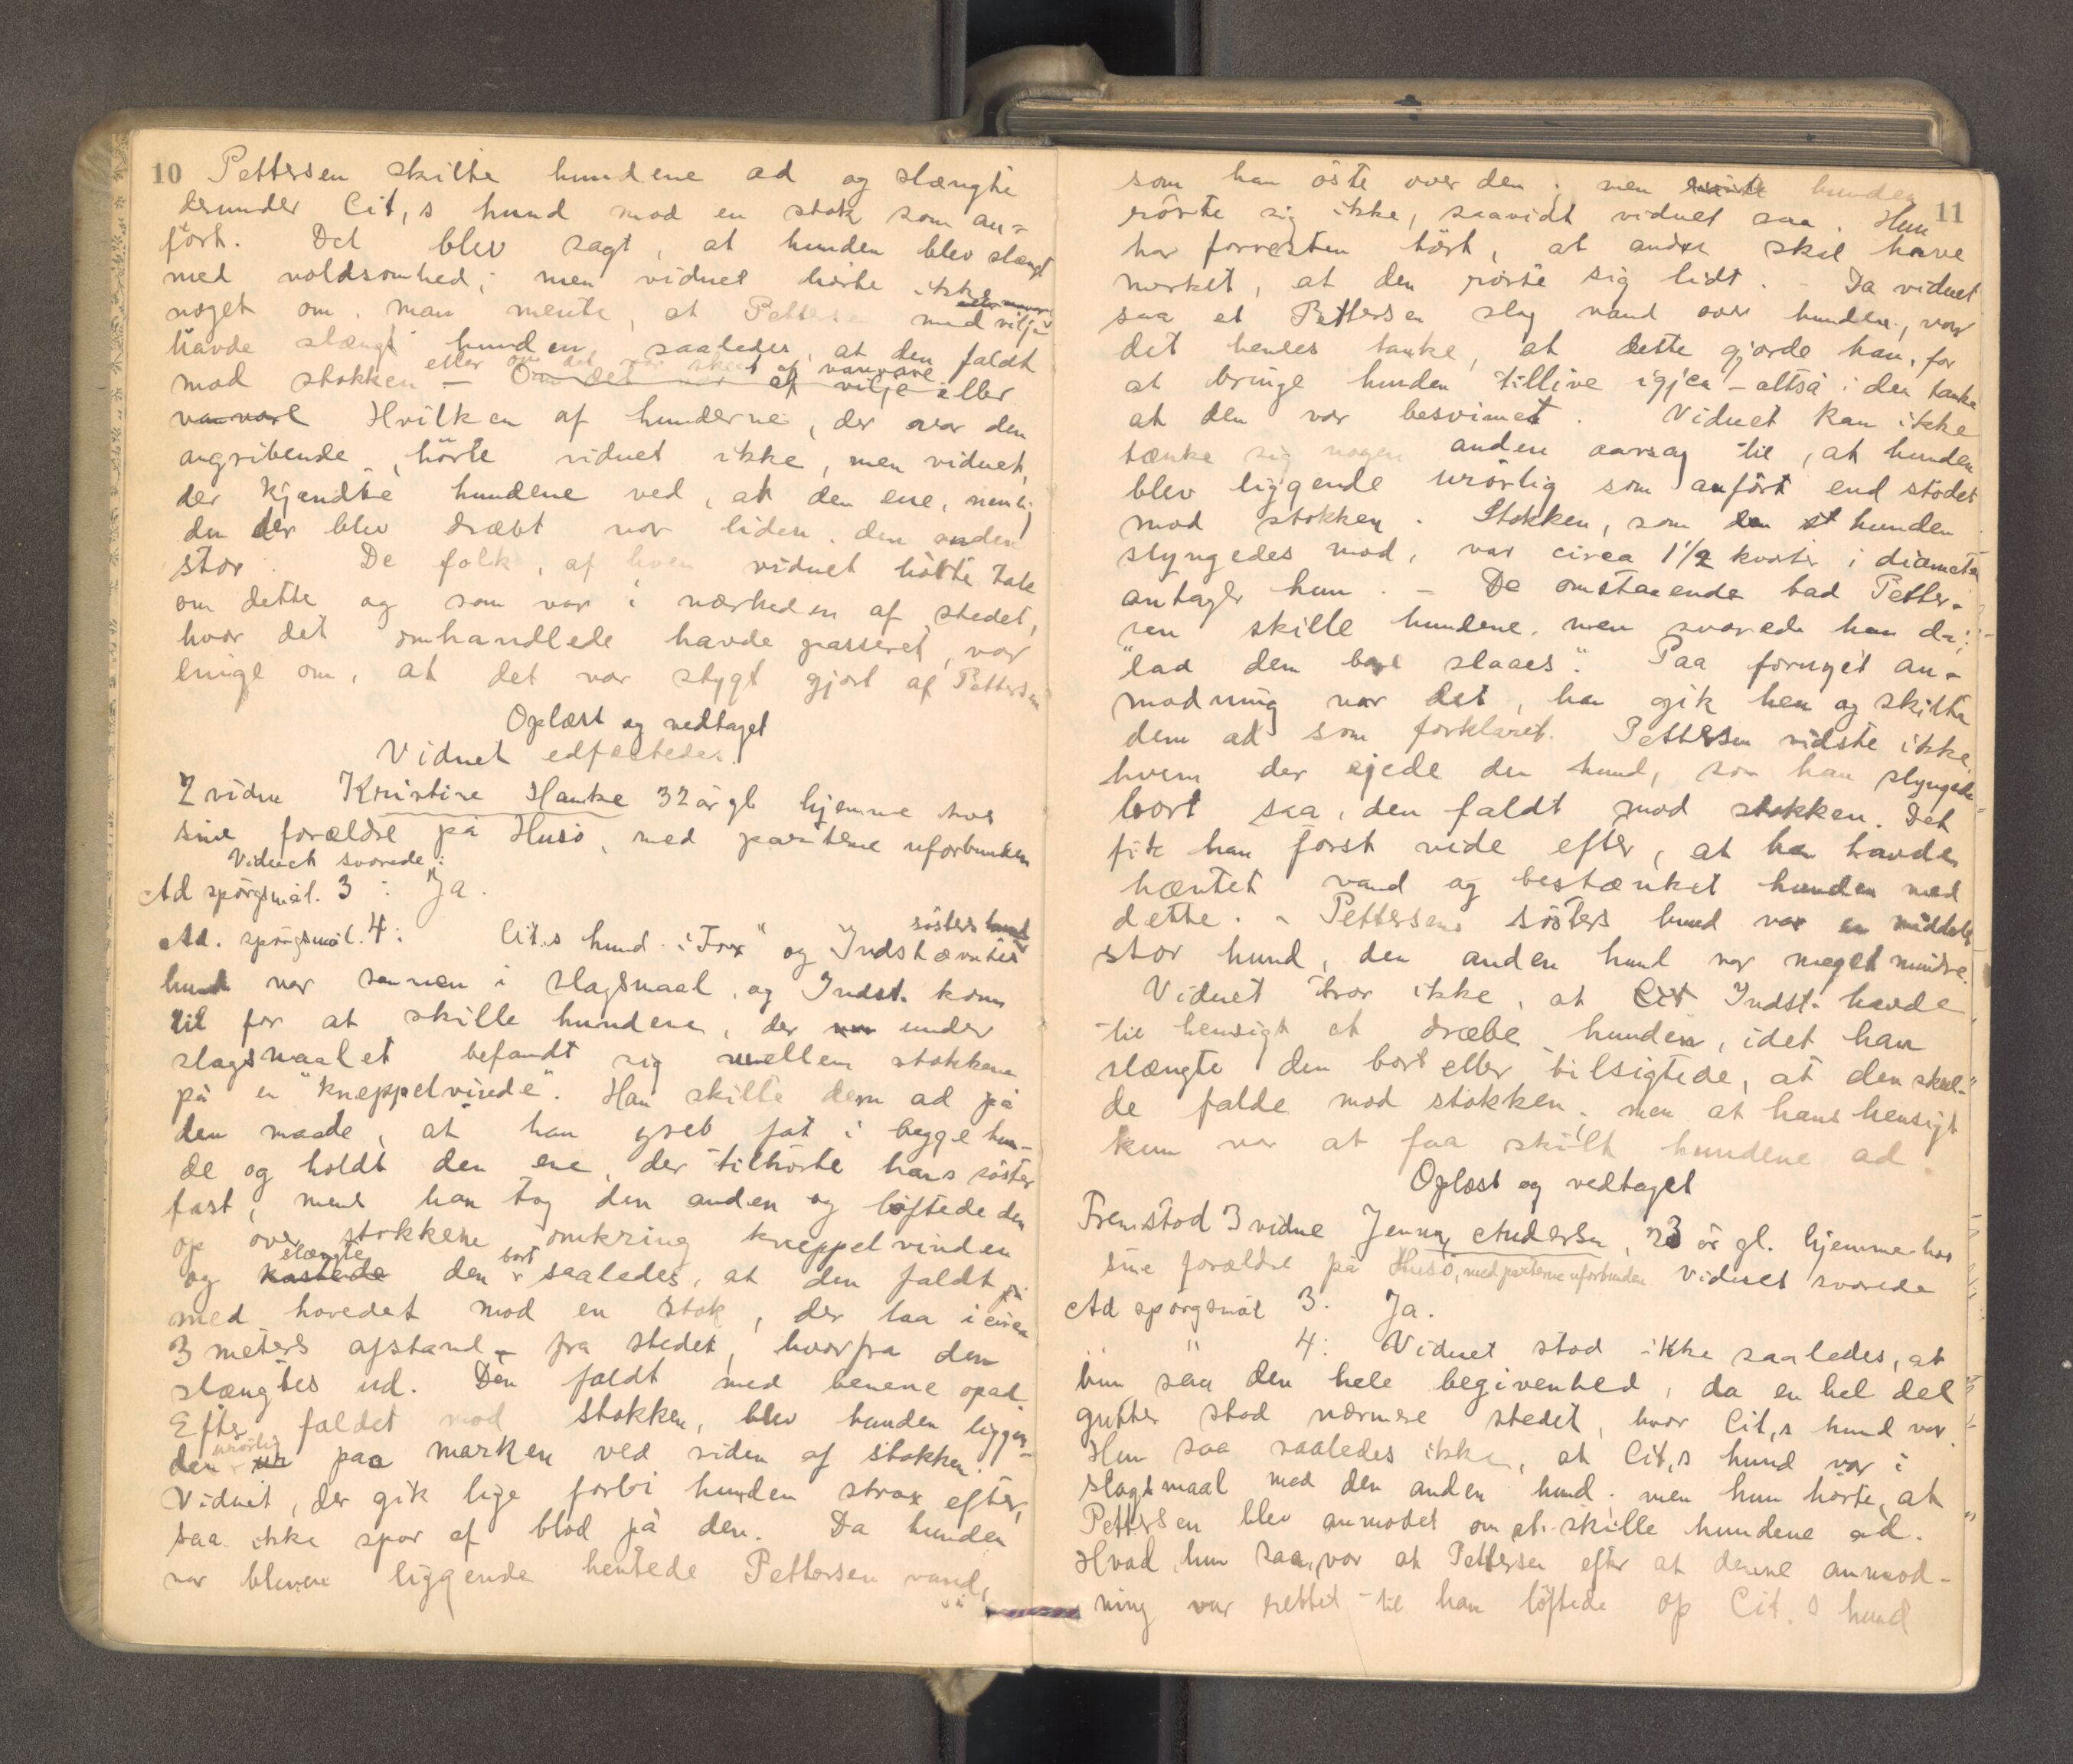 10 Pettersen skilte hundene ad og slængte
derunder Cit,s hund mod en stok som an-
ført. Det blev sagt, at hunden blev slængt
med voldsomhed; men vidnet hørte ikke
noget om, man mente, at Pettersen med vilje
havde slængt hunden saaledes, at den faldt
eller om det var skeet af vanvare
mod stokken – Om det var af vilje eller
vanvare Hvilken af hunderne, der var den
angribende, hörte vidnet ikke, men vidnet,
der kjendte hundene ved, at den ene, nemlig
den der blev dræbt var liden, den anden
stor. De folk, af hvem vidnet hörte tale
om dette og som var i nærheden af stedet,
hvor det omhandlede havde passeret, var
enige om, at det var stygt gjort af Pettersen
Oplæst og vedtaget
Vidnet edfæstedes.
2 vidne Kristine Hanke 32 år gl. hjemme hos
sine forældre på Husö, med parterne uforbunden
Vidnet svarede:
Ad spörgsmål. 3: Ja.
Ad. spörgsmål. 4: Cit.s hund "Fox" og Indstævntes
søsters hund
hund var sammen i slagsmaal, og Indst. kom
til for at skille hundene, der var under
slagsmaalet befandt sig mellem stokkene
på en "kneppelvinde". Han skilte dem ad på
den maade, at han greb fat i begge hun-
de og holdt den ene, der tilhörte hans söster
fast, mens han tog den anden og löftede den
op over stokkene omkring kneppelvinden
slængte bort
og kastede den saaledes, at den faldt på
med hovedet mod en stok, der laa i circa
3 meters afstand fra stedet, hvorfra den
slængtes ud. Den faldt med benene opad.
Efter faldet mod stokken, blev hunden liggen-
urørlig
den ur paa marken ved siden af stokken.
Vidnet, der gik lige forbi hunden strax efter,
saa ikke spor af blod på den. Da hunden
var bleven liggende hentede Pettersen vand,
11
som han öste over den; men hunden
rörte sig ikke, saavidt vidnet saa. Hun
har forresten hört, at andre skal have
merket, at den rörte sig lidt. – Da vidnet
saa at Pettersen slog vand over hunden, var
det hendes tanke, at dette gjorde han, for
at bringe hunden tillive igjen – altså i den tanke
at den var besvimet. Vidnet kan ikke
tænke sig nogen anden aarsag til, at hunden
blev liggende urörlig som anfört end stödet
mod stokken. Stokken, som den st hunden
slyngedes mod, var circa 1 1/2 kvarter i diameter
antager hun. – De omstaaende bad Petter-
sen skille hundene, men svarede han da:
"lad dem bare slaaes". Paa fornyet an-
modning var det, han gik hen og skilte
dem ad som forklaret. Pettersen vidste ikke,
hvem der ejede den hund, som han slyngede
bort saa, den faldt mod stokken. Det
fik han först vide efter, at han havde
hæntet vand og bestænket hunden med
dette. – Pettersens sösters hund var en middels
stor hund, den anden hund var meget mindre.
Vidnet tror ikke, at Cit Indst. havde
til hensigt at dræbe hunden, idet han
slængte den bort eller tilsigtede, at den skul-
de falde mod stokken; men at hans hensigt
kun var at faa skilt hundene ad.
Oplæst og vedtaget
Fremstod 3 vidne Jenny Andersen, 23 år gl. hjemme hos
sine forældre på Husö, med parterne uforbunden Vidnet svarede
Ad spörgsmål 3. Ja.
" " 4: Vidnet stod ikke saaledes, at
hun såa den hele begivenhed, da en hel del
gutter stod nærmere stedet, hvor Cit,s hund var.
Hun saa saaledes ikke, at Cit,s hund var i
slagsmaal med den anden hund; men hun hörte, at
Pettersen blev anmodet om at skille hundene ad.
Hvad hun saa, var at Pettersen efter at denne anmod-
ning var rettet til ham löftede op Cit.s hund